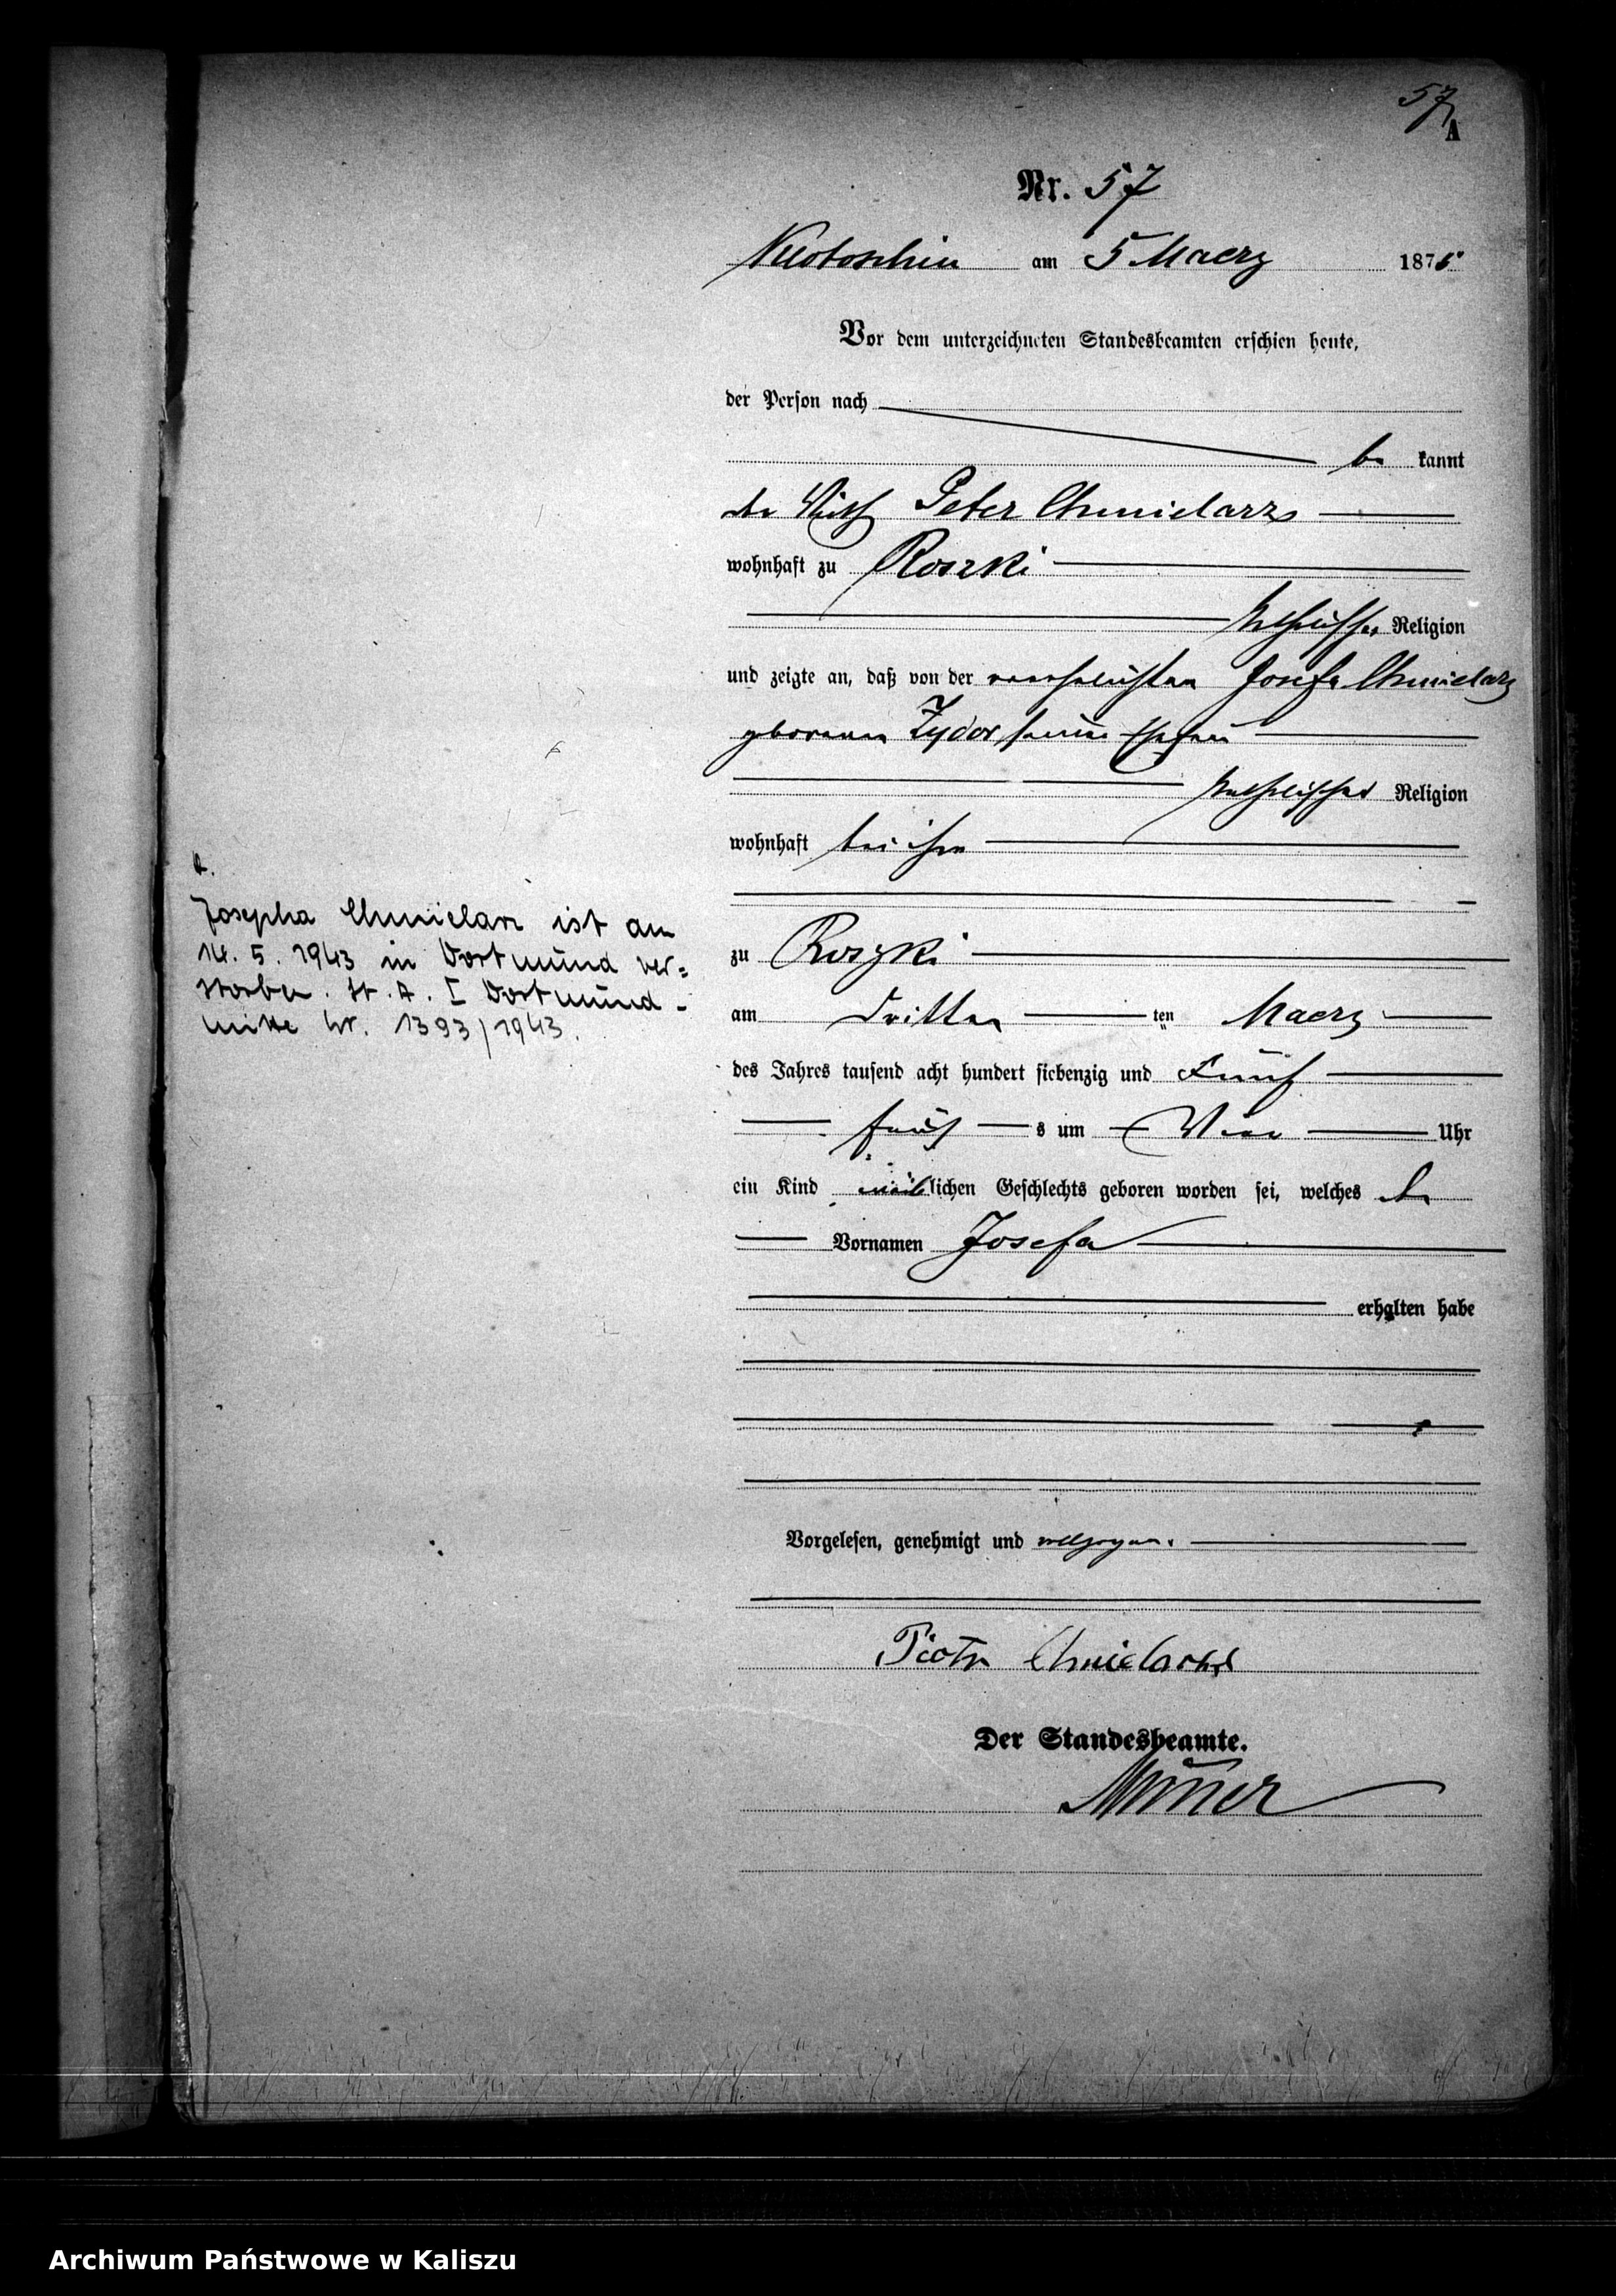 57
A
Nr. 57
Krotoschin am 5 Maerz 1875
Vor dem unterzeichneten Standesbeamten erschien heute,
der Person nach
be kannt
der Wirth Peter Chmielarz
wohnhaft zu Roszki
katholischer Religion
und zeigte an, daß von der verehelichten Josefa Chmielarz
geborenen Zydor seiner Ehefrau
katholischer Religion
wohnhaft bei ihm
zu Roszki
am dritten ten Maerz
des Jahres tausend acht hundert siebenzig und Fünf
früh s um Uhr
ein Kind weiblichen Geschlechts geboren worden sei, welches den
Vornamen Josefa
erhalten habe
Vorgelesen, genehmigt und vollzogen.
Piotr Chmielarz
Der Standesbeamte.
Josepha Chmielarz ist am
14. 5. 1943 in Dortmund ver=
storben. St. A. I Dortmund-
mitte Nr. 1393/1943.
Archiwum Państwowe w Kaliszu